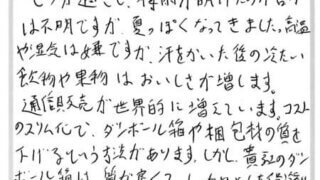 は不明ですが、夏っぽくなってきました。高温
や湿気は嫌ですが、汗をかいた後の冷たい
飲物や果物はおいしさが増します。
通信販売が世界的に増えています。コスト
のスリム化で、ダンボール箱や梱包材の質を
下げるという方法があります。しかし、貴社のダン
ボール箱は